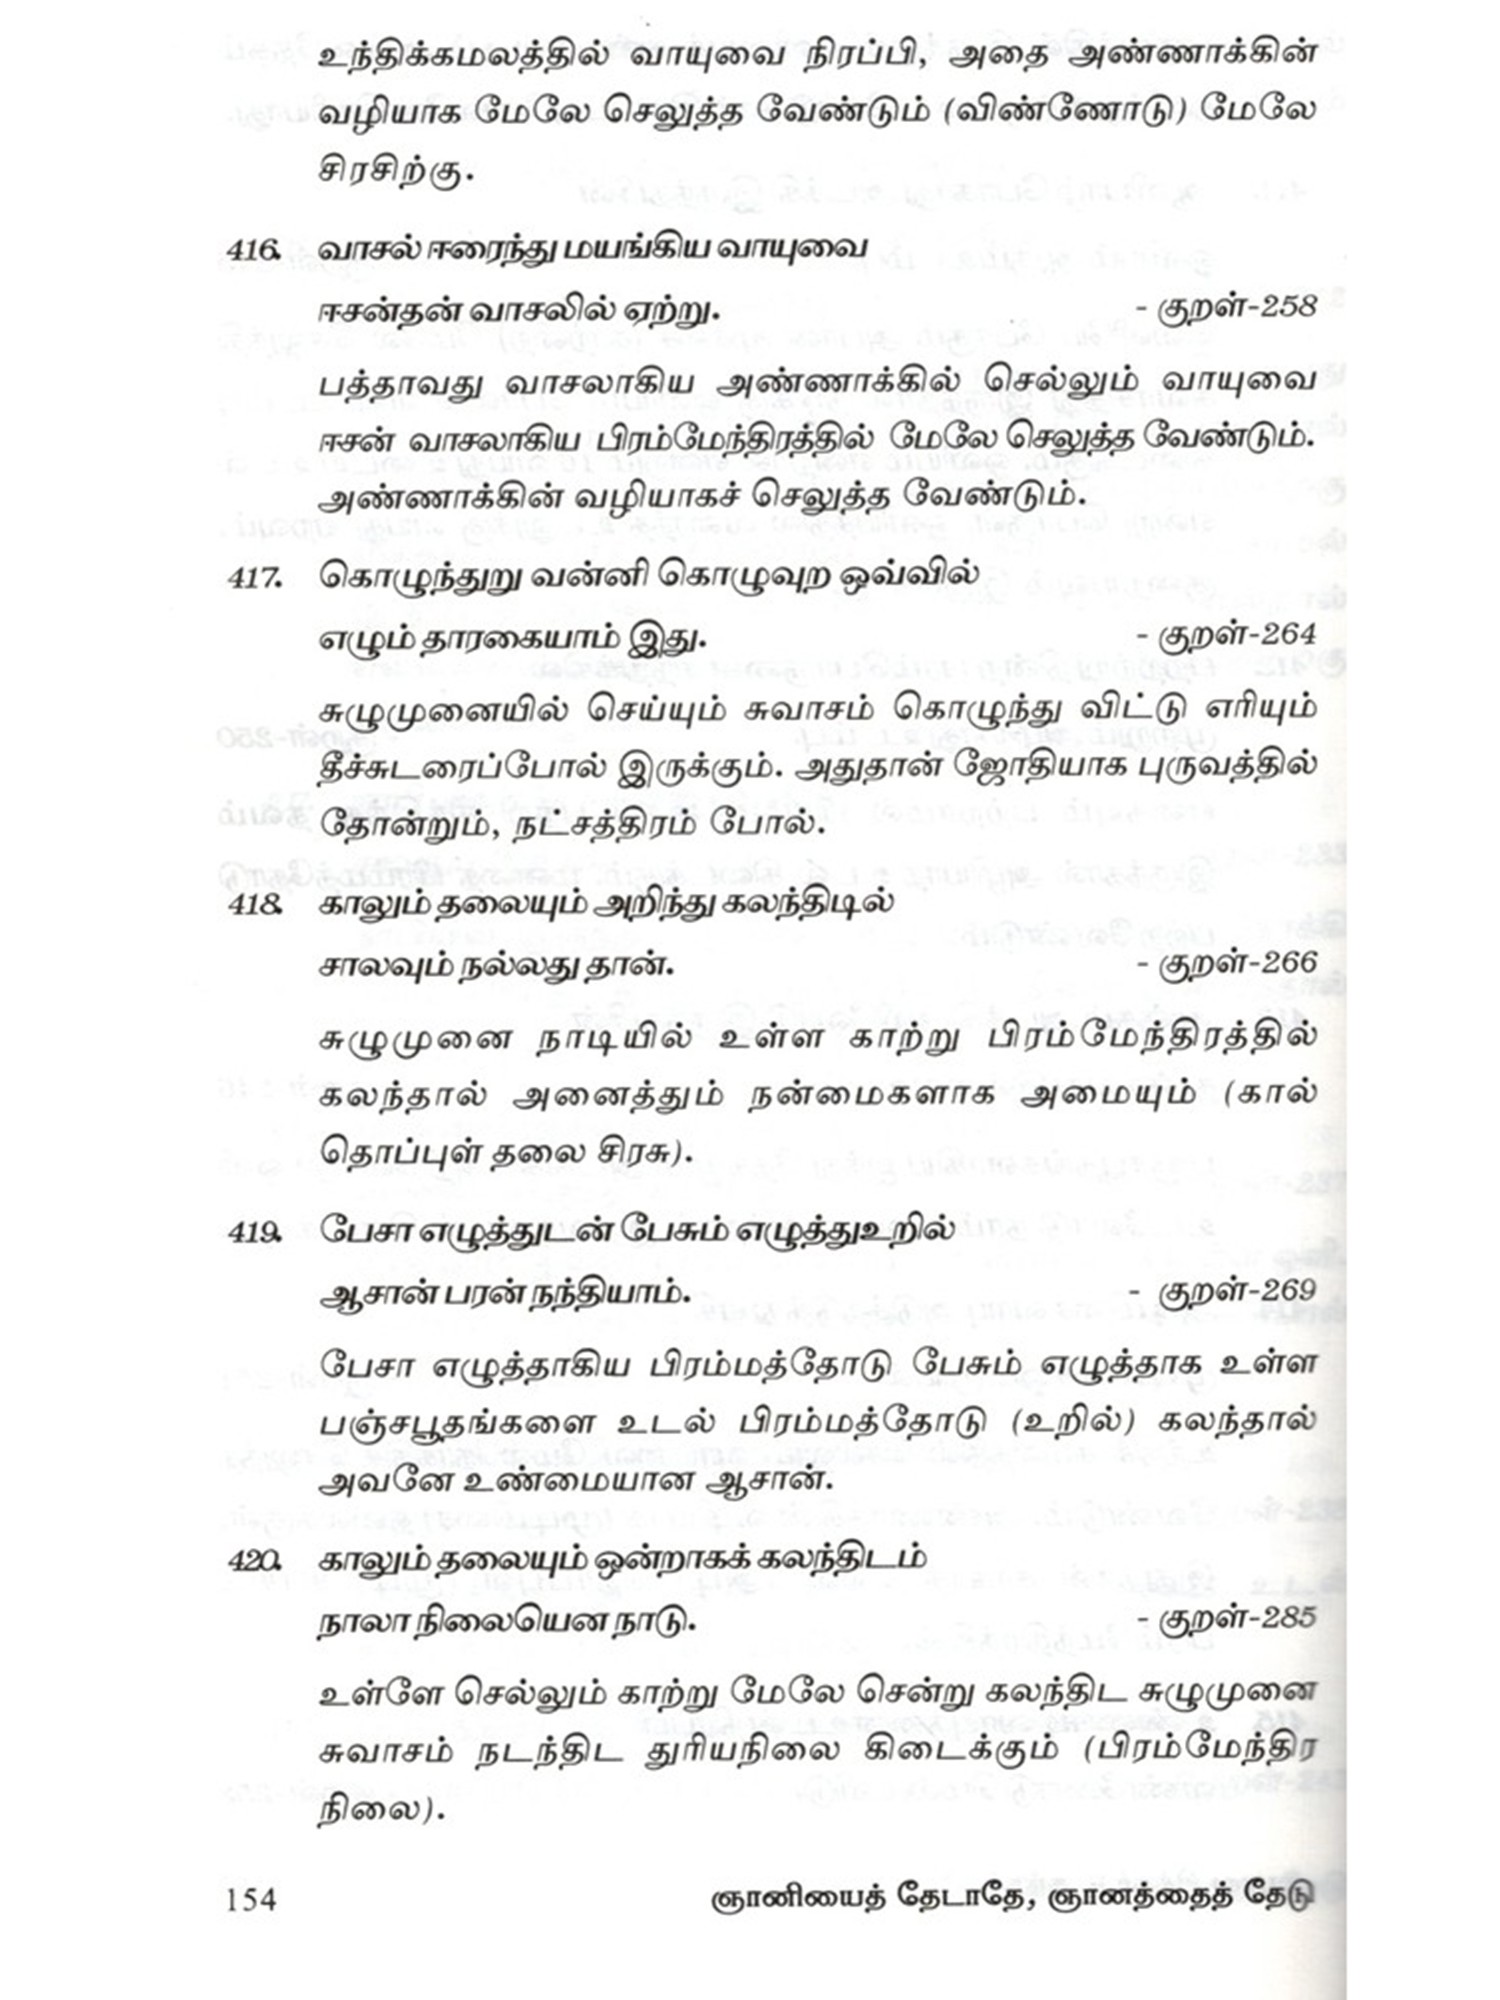 உந்திக்கமலத்தில் வாயுவை நிரப்பி, அதை அண்ணாக்கின்
வழியாக மேலே செலுத்த வேண்டும் (விண்ணோடு) மேலே
சிரசிற்கு.
416. வாசல் ஈரைந்து மயங்கிய வாயுவை
ஈசன்தன் வாசலில் ஏற்று. - குறள்-258
பத்தாவது வாசலாகிய அண்ணாக்கில் செல்லும் வாயுவை
ஈசன் வாசலாகிய பிரம்மேந்திரத்தில் மேலே செலுத்த வேண்டும்.
அண்ணாக்கின் வழியாகச் செலுத்த வேண்டும்.
417. கொழுந்துறு வன்னி கொழுவுற ஒவ்வில்
எழும் தாரகையாம் இது. - குறள்-264
சுழுமுனையில் செய்யும் சுவாசம் கொழுந்து விட்டு எரியும்
தீச்சுடரைப்போல் இருக்கும். அதுதான் ஜோதியாக புருவத்தில்
தோன்றும், நட்சத்திரம் போல்.
418. காலும் தலையும் அறிந்து கலந்திடில்
சாலவும் நல்லது தான். - குறள்-266
சுழுமுனை நாடியில் உள்ள காற்று பிரம்மேந்திரத்தில்
கலந்தால் அனைத்தும் நன்மைகளாக அமையும் (கால்
தொப்புள் தலை சிரசு).
419. பேசா எழுத்துடன் பேசும் எழுத்துஉறில்
ஆசான் பரன் நந்தியாம். - குறள்-269
பேசா எழுத்தாகிய பிரம்மத்தோடு பேசும் எழுத்தாக உள்ள
பஞ்சபூதங்களை உடல் பிரம்மத்தோடு (உறில்) கலந்தால்
அவனே உண்மையான ஆசான்.
420. காலும் தலையும் ஒன்றாகக் கலந்திடம்
நாலா நிலையென நாடு. - குறள்-285
உள்ளே செல்லும் காற்று மேலே சென்று கலந்திட சுழுமுனை
சுவாசம் நடந்திட துரியநிலை கிடைக்கும் (பிரம்மேந்திர
நிலை).
154 ஞானியைத் தேடாதே, ஞானத்தைத் தேடு